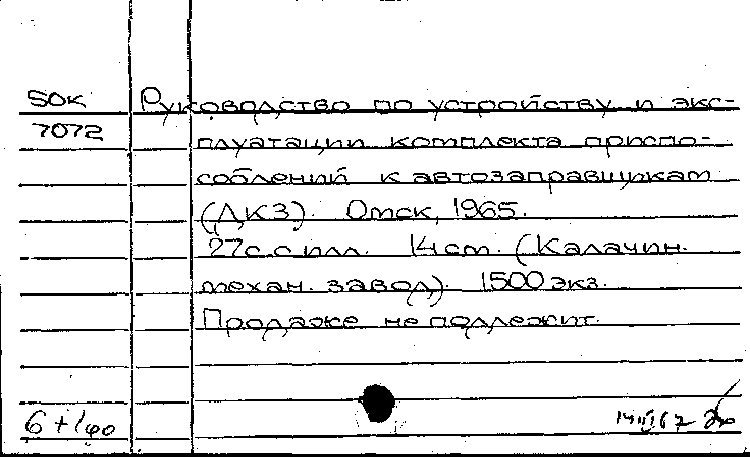 50к Руководство по устройству и экс-
7072 плуатации комплекта приспо-
соблений к автозаправщикам
(ДКЗ). Омск, 1965.
27с. с илл. 14 см. (Калачин.
механ. завод). 1500 экз.
Продаже не подлежит.
6+1фо